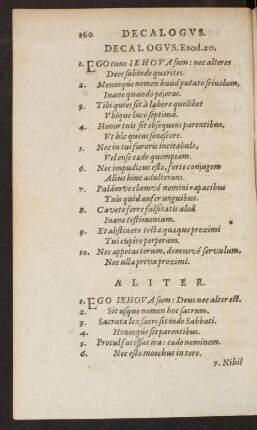 160 DECALOGVS.
DECALOGVS. Exod.20.
1. EGO tuus IEHOVA sum: nec alteros
Deos subinde quærites.
2. Meumque nomen haud putato frivolum,
Inane quando pejeras.
3. Tibi quies sit à labore quolibet
Vbique luce septimâ.
4. Honor tuis sit obsequens parentibus,
Vt hîc queas senescere.
5. Nec in tui furoris incitabulo,
Vel ense cæde quempiam.
6. Nec impudicus esto, forte conjugem
Alius hinc adulterans.
7. Palámve clamvé nemini rapacibus
Tuis quid aufer unguibus.
8. Caveto ferre falsitatis aleâ
Inane testimonium.
9. Et abstineto tecta quæque proximi
Tui cupire perperam.
10. Nec appetas torum, domusvé servulum,
Nec ulla priva proximi.
ALITER.
1. EGO IEHOVA sum: Deus nec alter est.
2. Sit usque nomen hoc sacrum.
3. Sacrata lex sacri sit inde Sabbati.
4. Honosque sit parentibus.
5. Procul facessat ira: cæde neminem.
6. Nec esto moechus in toro.
7. Nihil